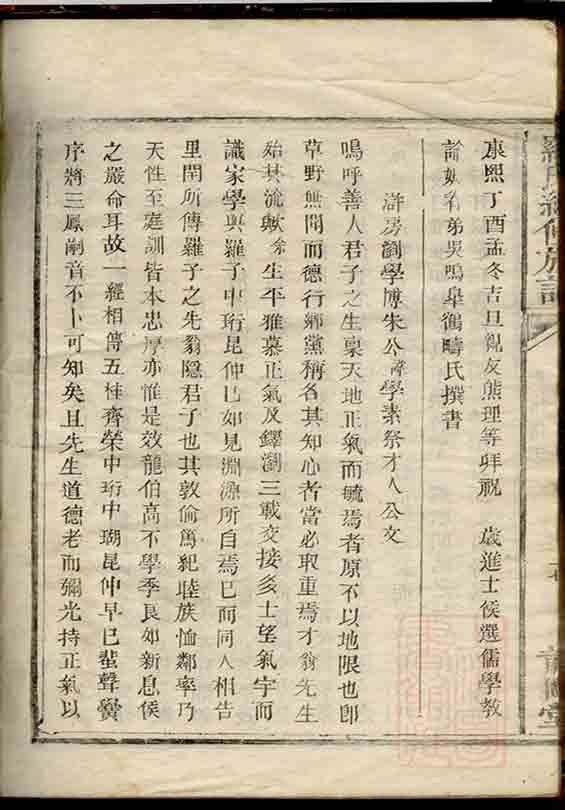 康熙丁酉孟冬吉旦親友熊理等拜祝 歲進士候選儒學教
諭姻眷弟吳鳴皋鶴疇氏撰書
滸房瀏學博朱公諱學素祭才人公文
嗚呼善人君子之生稟天地正氣而毓焉者原不以地限也即
草野無聞而德行鄉黨稱名其知心者當必取重焉才翁先生
殆其流歟余生平雅慕正氣及鐸瀏三載交接多士望氣宇而
識家學與羅子中珩昆仲已如見淵源所自焉已而同人相告
里閈所傳羅子之先翁隱君子也其敦倫篤紀睦族恤鄰率乃
天性至庭訓皆本忠厚亦惟是效龍伯高不學季良如新息侯
之嚴命耳故一經相傳五桂齊榮中珩中瑚昆仲早已蜚聲黌
序將三鳳嗣音不卜可知矣且先生道德老而彌光持正氣以